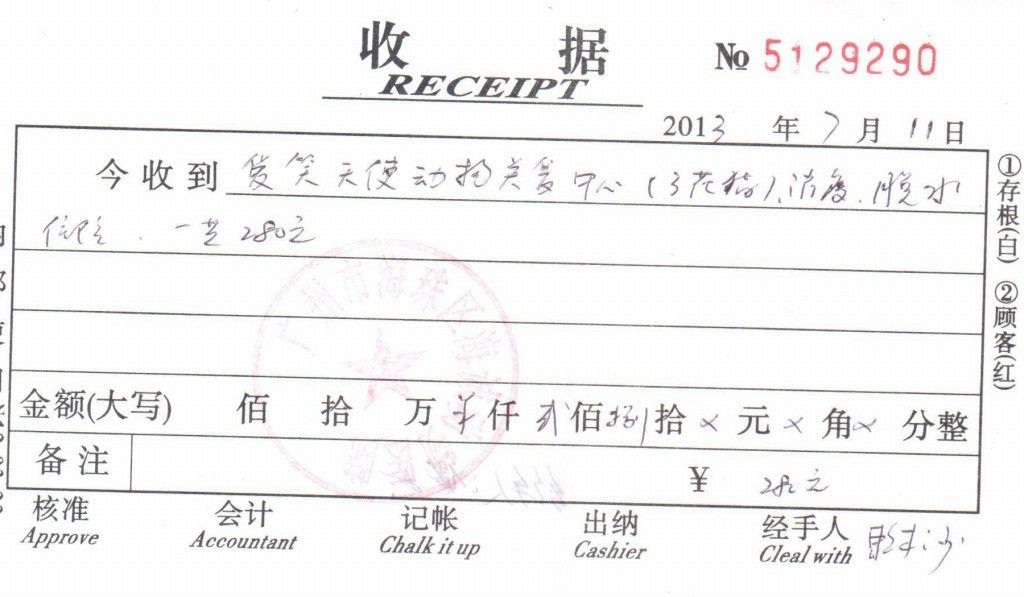 收 据
RECEIPT
№ 5129290
2013 年 7 月 11 日
今收到 爱笑天使动物关爱中心(三花猫)、消毒、脱水
住院、一共280元
金额(大写) 佰 拾 万 仟 贰佰捌拾 × 元 × 角 × 分整
备注 ¥ 280元
核准 会计 记帐 出纳 经手人
Approve Accountant Chalk it up Cashier Cleal with
①存根(白) ②顾客(红)
广州市海珠区海